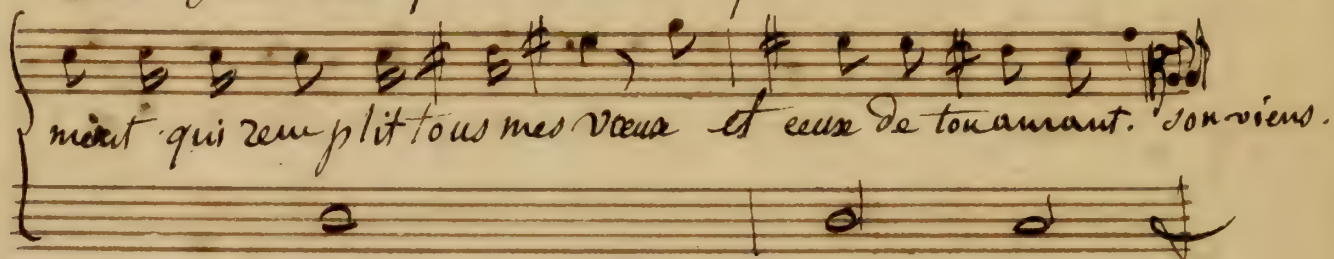 ment qui rem plit tous mes vœux et ceux de ton amant. Sou-viens.